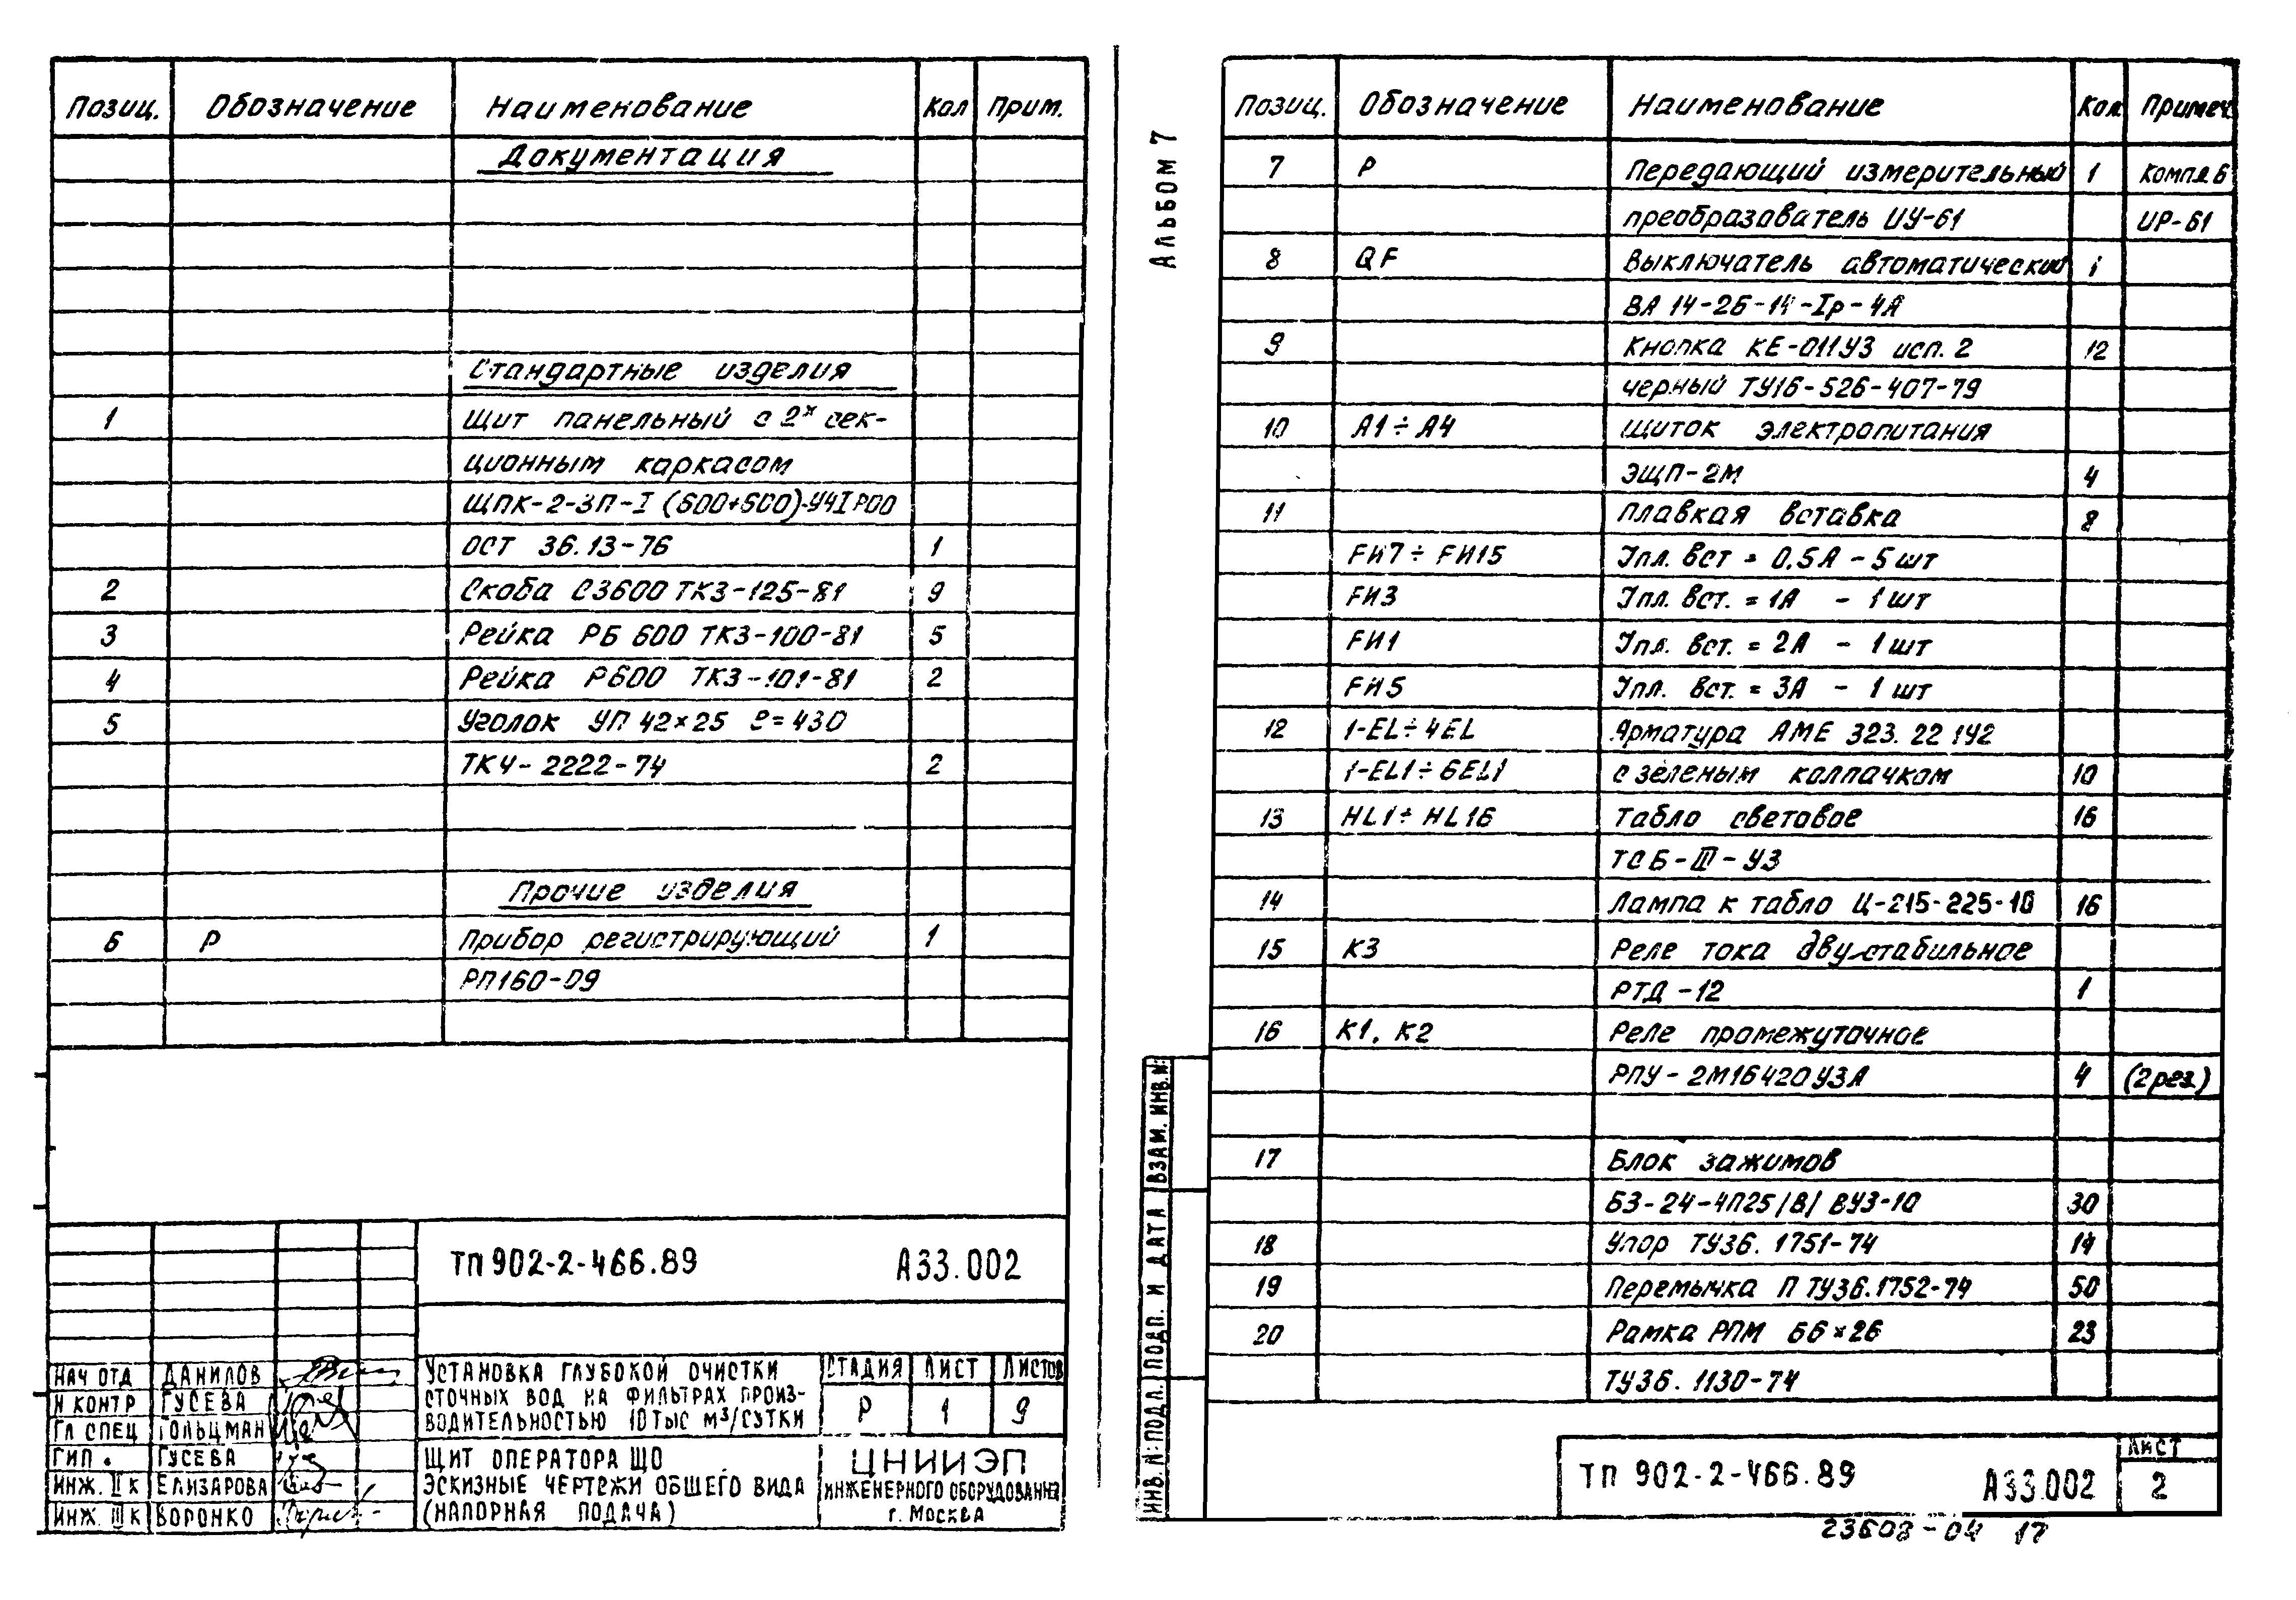 Позиц. Обозначение Наименование Кол Прим.
Документация
Стандартные изделия
1 Щит панельный с 2х сек-
ционным каркасом
ЩПК-2-ЗП-I (600+600)-У4IP00
ОСТ 36.13-76 1
2 Скоба С3600 ТК3-125-81 9
3 Рейка РБ 600 ТК3-100-81 5
4 Рейка Р600 ТК3-101-81 2
5 Уголок УП 42×25 ℓ=430
ТК4-2222-74 2
Прочие изделия
6 Р Прибор регистрирующий 1
РП160-09
ТП 902-2-466.89 А33.002
НАЧ ОТД ДАНИЛОВ
Н КОНТР ГУСЕВА
ГЛ СПЕЦ ГОЛЬЦМАН
ГИП. ГУСЕВА
ИНЖ. II К ЕЛИЗАРОВА
ИНЖ. III К ВОРОНКО
УСТАНОВКА ГЛУБОКОЙ ОЧИСТКИ
СТОЧНЫХ ВОД НА ФИЛЬТРАХ ПРОИЗ-
ВОДИТЕЛЬНОСТЬЮ 10 ТЫС М³/СУТКИ
СТАДИЯ ЛИСТ ЛИСТОВ
Р 1 9
ЩИТ ОПЕРАТОРА ЩО
ЭСКИЗНЫЕ ЧЕРТЕЖИ ОБЩЕГО ВИДА
(НАПОРНАЯ ПОДАЧА)
ЦНИИЭП
ИНЖЕНЕРНОГО ОБОРУДОВАНИЯ
г. МОСКВА
АЛЬБОМ 7
Позиц. Обозначение Наименование Кол Примеч.
7 Р Передающий измерительный 1 Компл 6
преобразователь ИУ-61 ИР-61
8 QF Выключатель автоматический 1
ВА 14-26-14-Iр-4А
9 Кнопка КЕ-011У3 исп. 2 12
черный ТУ16-526-407-79
10 А1÷А4 Щиток электропитания
ЭЩП-2М 4
11 Плавкая вставка 8
FИ7÷FИ15 Iпл. вст = 0,5А - 5 шт
FИ3 Iпл. вст. = 1А - 1 шт
FИ1 Iпл. вст. = 2А - 1 шт
FИ5 Iпл. вст. = 3А - 1 шт
12 1-EL÷4EL Арматура АМЕ 323. 22 1У2
1-EL1÷6EL1 с зеленым колпачком 10
13 HL1÷HL16 Табло световое 16
ТСБ-III-У3
14 Лампа к табло Ц-215-225-10 16
15 К3 Реле тока двустабильное
РТД-12 1
16 К1, К2 Реле промежуточное
РПУ-2М16420У3А 4 (2 рез.)
17 Блок зажимов
БЗ-24-4П25/В/ ВУ3-10 30
18 Упор ТУ36. 1751-74 14
19 Перемычка П ТУ36.1752-74 50
20 Рамка РПМ 66×26 23
ТУ36. 1130-74
ИНВ. N: ПОДЛ. ПОДП. И ДАТА ВЗАМ. ИНВ. N:
ТП 902-2-466.89 А33.002
ЛИСТ
2
23608-04 17